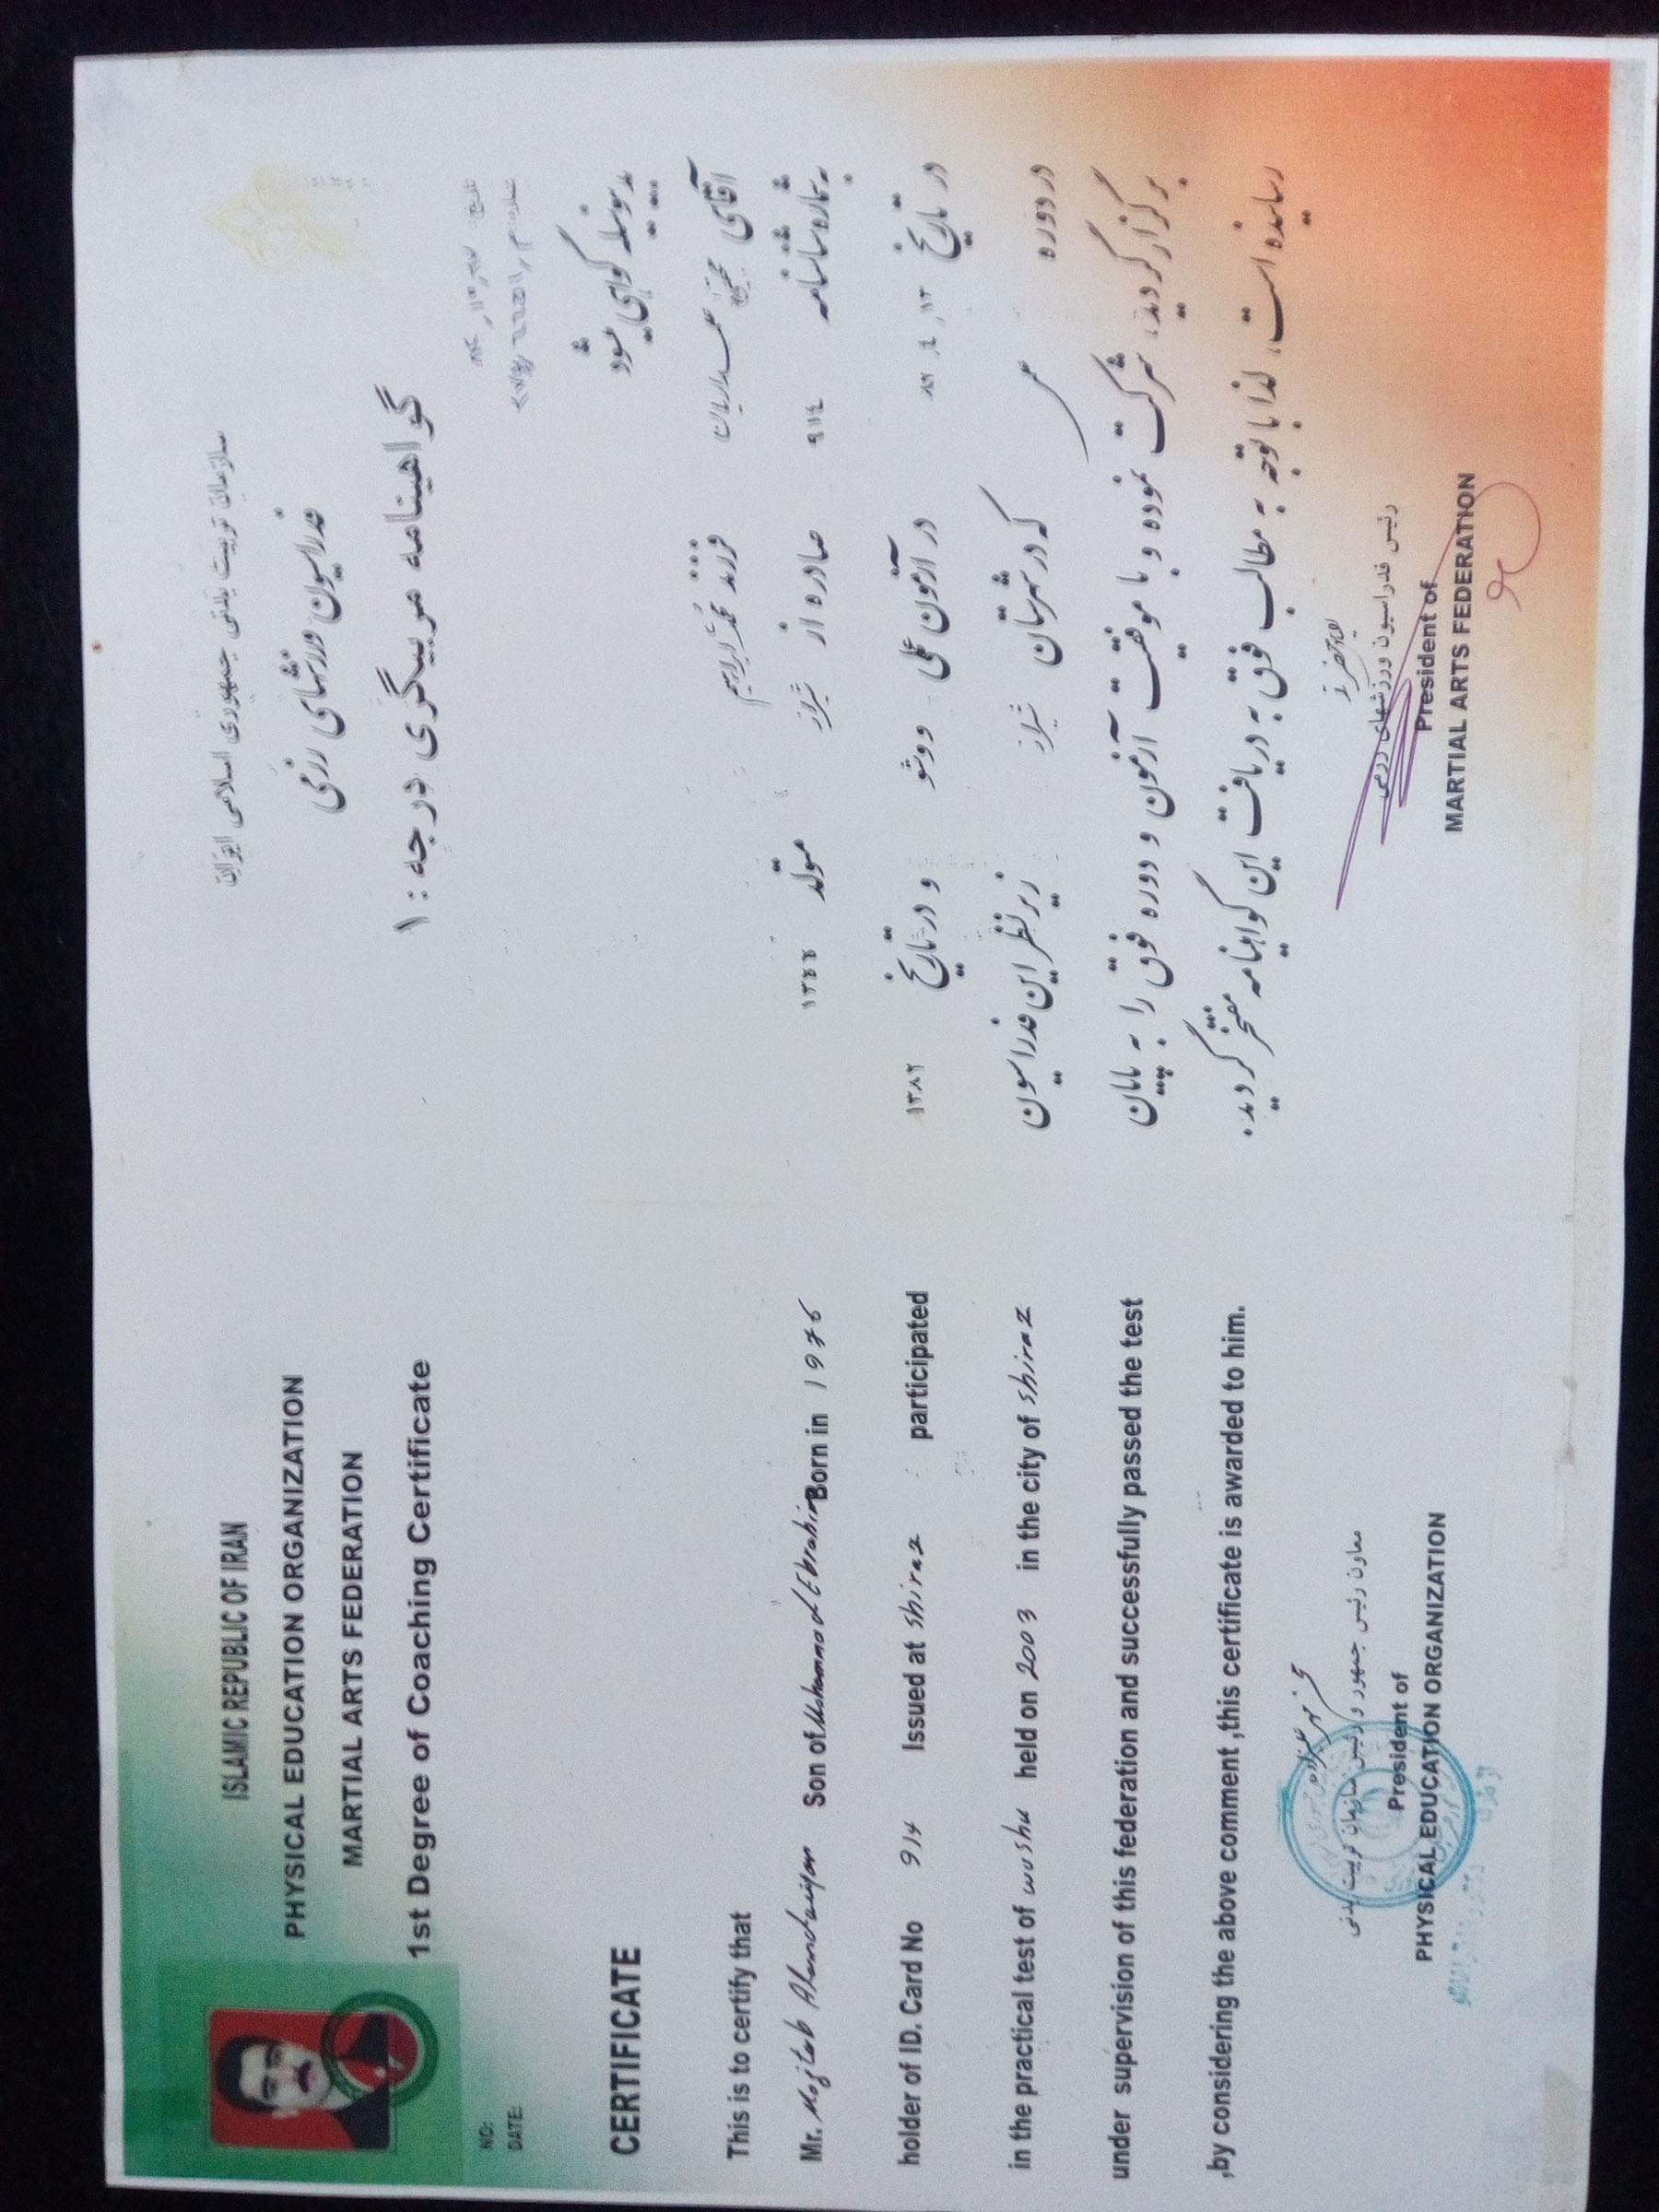 ISLAMIC REPUBLIC OF IRAN
PHYSICAL EDUCATION ORGANIZATION
MARTIAL ARTS FEDERATION
1st Degree of Coaching Certificate
NO:
DATE:
CERTIFICATE
This is to certify that
Mr. Mojtab Son of Mohammad Ebrahim Born in 1976
holder of ID. Card No 914 Issued at Shiraz participated
in the practical test of wushu held on 2003 in the city of Shiraz
under supervision of this federation and successfully passed the test
,by considering the above comment ,this certificate is awarded to him.
معاون رئیس جمهور و رئیس سازمان تربیت بدنی
President of
PHYSICAL EDUCATION ORGANIZATION
سازمان تربیت بدنی جمهوری اسلامی ایران
فدراسیون ورزشهای رزمی
گواهینامه مربیگری درجه : ۱
تاریخ:
شماره:
بدینوسیله گواهی میشود
آقای مجتبی فرزند محمد ابراهیم
به شماره شناسنامه ۹۱٤ صادره از شیراز متولد ۱۳۵۵
در تاریخ در آزمون عملی ووشو و در تاریخ ۱۳۸۲
در دوره که در شهرستان شیراز زیر نظر این فدراسیون
برگزار گردید، شرکت نموده و با موفقیت آزمون و دوره فوق را به پایان
رسانیده است، لذا با توجه به مطالب فوق به دریافت این گواهینامه مفتخر گردید.
رئیس فدراسیون ورزشهای رزمی
President of
MARTIAL ARTS FEDERATION